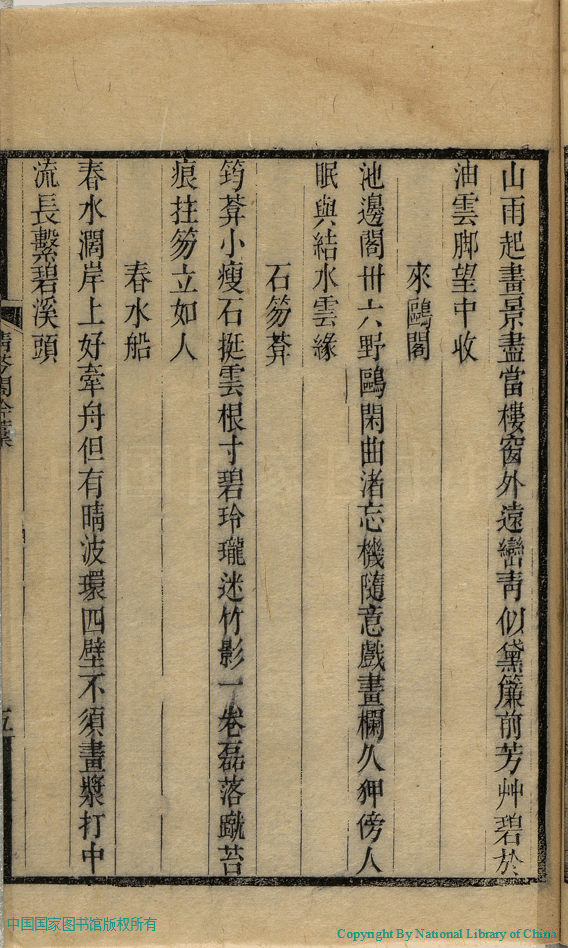 山雨起畫景盡當樓窗外遠巒青似黛簾前芳艸碧於
油雲脚望中收
來鷗閣
池邊閣卅六野鷗閑曲渚忘機隨意戲畫欄久狎傍人
眠與結水雲緣
石笏葊
筠葊小瘦石挺雲根寸碧玲瓏迷竹影一卷磊落蹴苔
痕拄笏立如人
春水船
春水濶岸上好牽舟但有晴波環四壁不須畫槳打中
流長繫碧溪頭
五
中国国家图书馆版权所有
Copyright By National Library of China